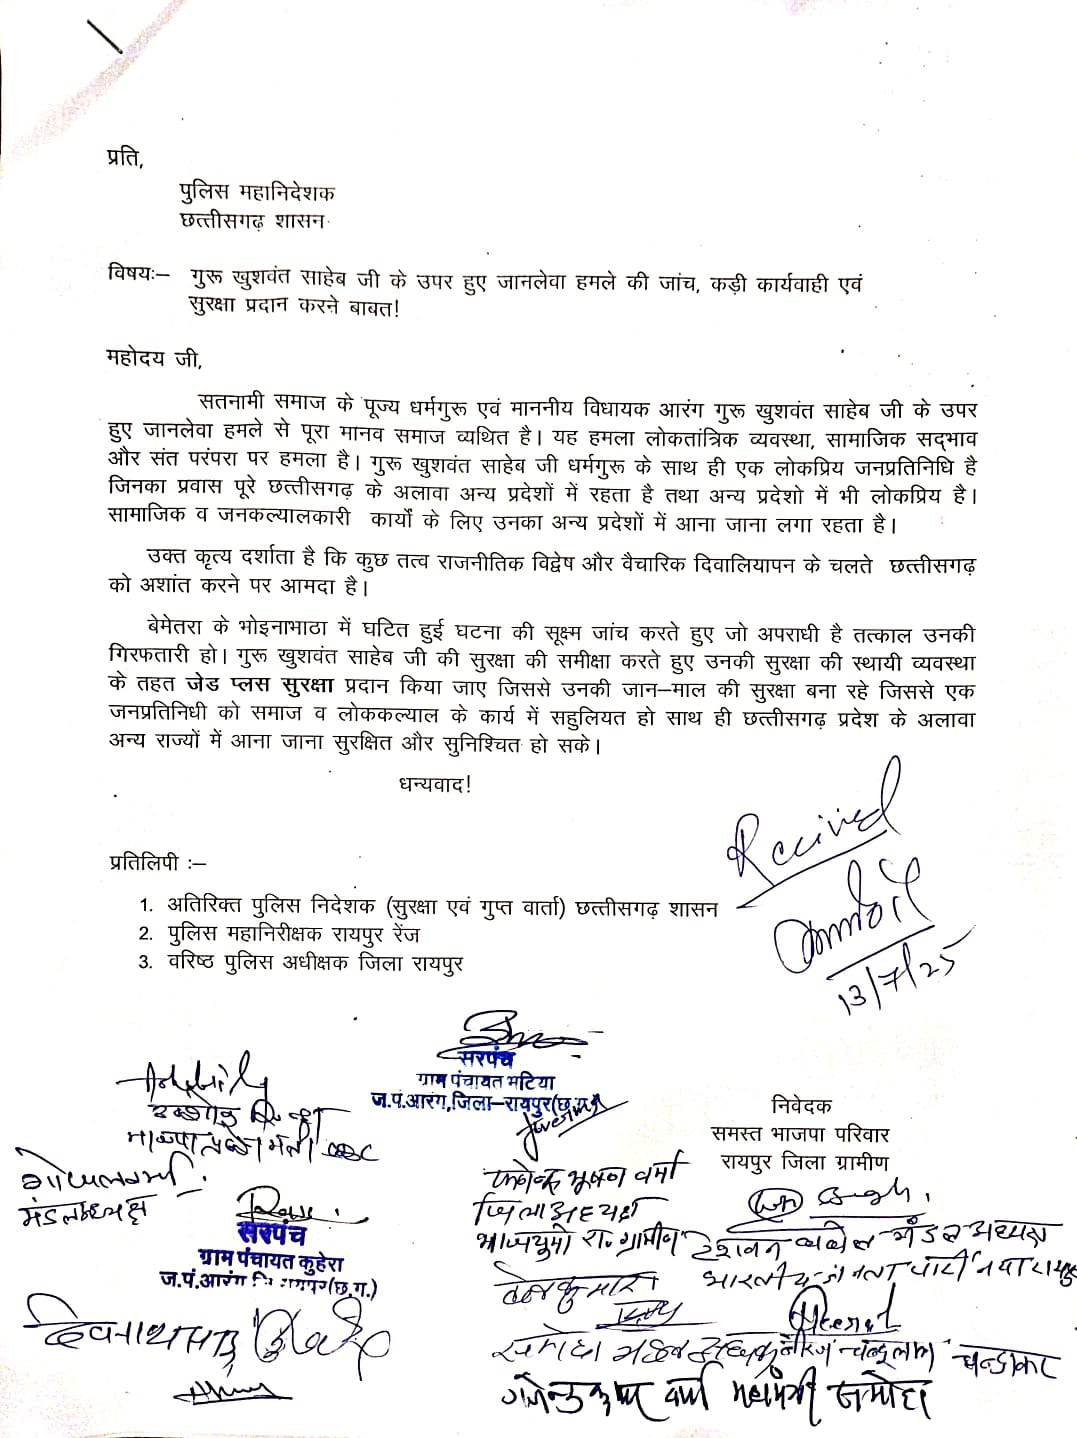 प्रति,
पुलिस महानिदेशक
छत्तीसगढ़ शासन
विषयः– गुरू खुशवंत साहेब जी के उपर हुए जानलेवा हमले की जांच, कड़ी कार्यवाही एवं
सुरक्षा प्रदान करने बाबत!
महोदय जी,
सतनामी समाज के पूज्य धर्मगुरू एवं माननीय विधायक आरंग गुरू खुशवंत साहेब जी के उपर
हुए जानलेवा हमले से पूरा मानव समाज व्यथित है। यह हमला लोकतांत्रिक व्यवस्था, सामाजिक सद्भाव
और संत परंपरा पर हमला है। गुरू खुशवंत साहेब जी धर्मगुरू के साथ ही एक लोकप्रिय जनप्रतिनिधि है
जिनका प्रवास पूरे छत्तीसगढ़ के अलावा अन्य प्रदेशों में रहता है तथा अन्य प्रदेशो में भी लोकप्रिय है।
सामाजिक व जनकल्यालकारी कार्यों के लिए उनका अन्य प्रदेशों में आना जाना लगा रहता है।
उक्त कृत्य दर्शाता है कि कुछ तत्व राजनीतिक विद्वेष और वैचारिक दिवालियापन के चलते छत्तीसगढ़
को अशांत करने पर आमदा है।
बेमेतरा के भोइनाभाठा में घटित हुई घटना की सूक्ष्म जांच करते हुए जो अपराधी है तत्काल उनकी
गिरफतारी हो। गुरू खुशवंत साहेब जी की सुरक्षा की समीक्षा करते हुए उनकी सुरक्षा की स्थायी व्यवस्था
के तहत जेड प्लस सुरक्षा प्रदान किया जाए जिससे उनकी जान–माल की सुरक्षा बना रहे जिससे एक
जनप्रतिनिधी को समाज व लोककल्याल के कार्य में सहुलियत हो साथ ही छत्तीसगढ़ प्रदेश के अलावा
अन्य राज्यों में आना जाना सुरक्षित और सुनिश्चित हो सके।
धन्यवाद!
Rcived
13/7/25
प्रतिलिपी :–
1. अतिरिक्त पुलिस निदेशक (सुरक्षा एवं गुप्त वार्ता) छत्तीसगढ़ शासन
2. पुलिस महानिरीक्षक रायपुर रेंज
3. वरिष्ठ पुलिस अधीक्षक जिला रायपुर
सरपंच
ग्राम पंचायत भटिया
ज.पं.आरंग,जिला–रायपुर(छ.ग.)
निवेदक
समस्त भाजपा परिवार
रायपुर जिला ग्रामीण
मंडलाध्यक्ष
भूषण वर्मा
जिलाअध्यक्ष
भाजयुमो रा. ग्रामीण
मंडल अध्यक्ष
सरपंच
ग्राम पंचायत कुहेरा
ज.पं.आरंग जि रायपुर(छ.ग.)
चन्द्राकर
वर्मा महामंत्री